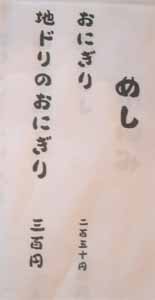 めし
おにぎり 二百五十円
地ドリのおにぎり 三百円